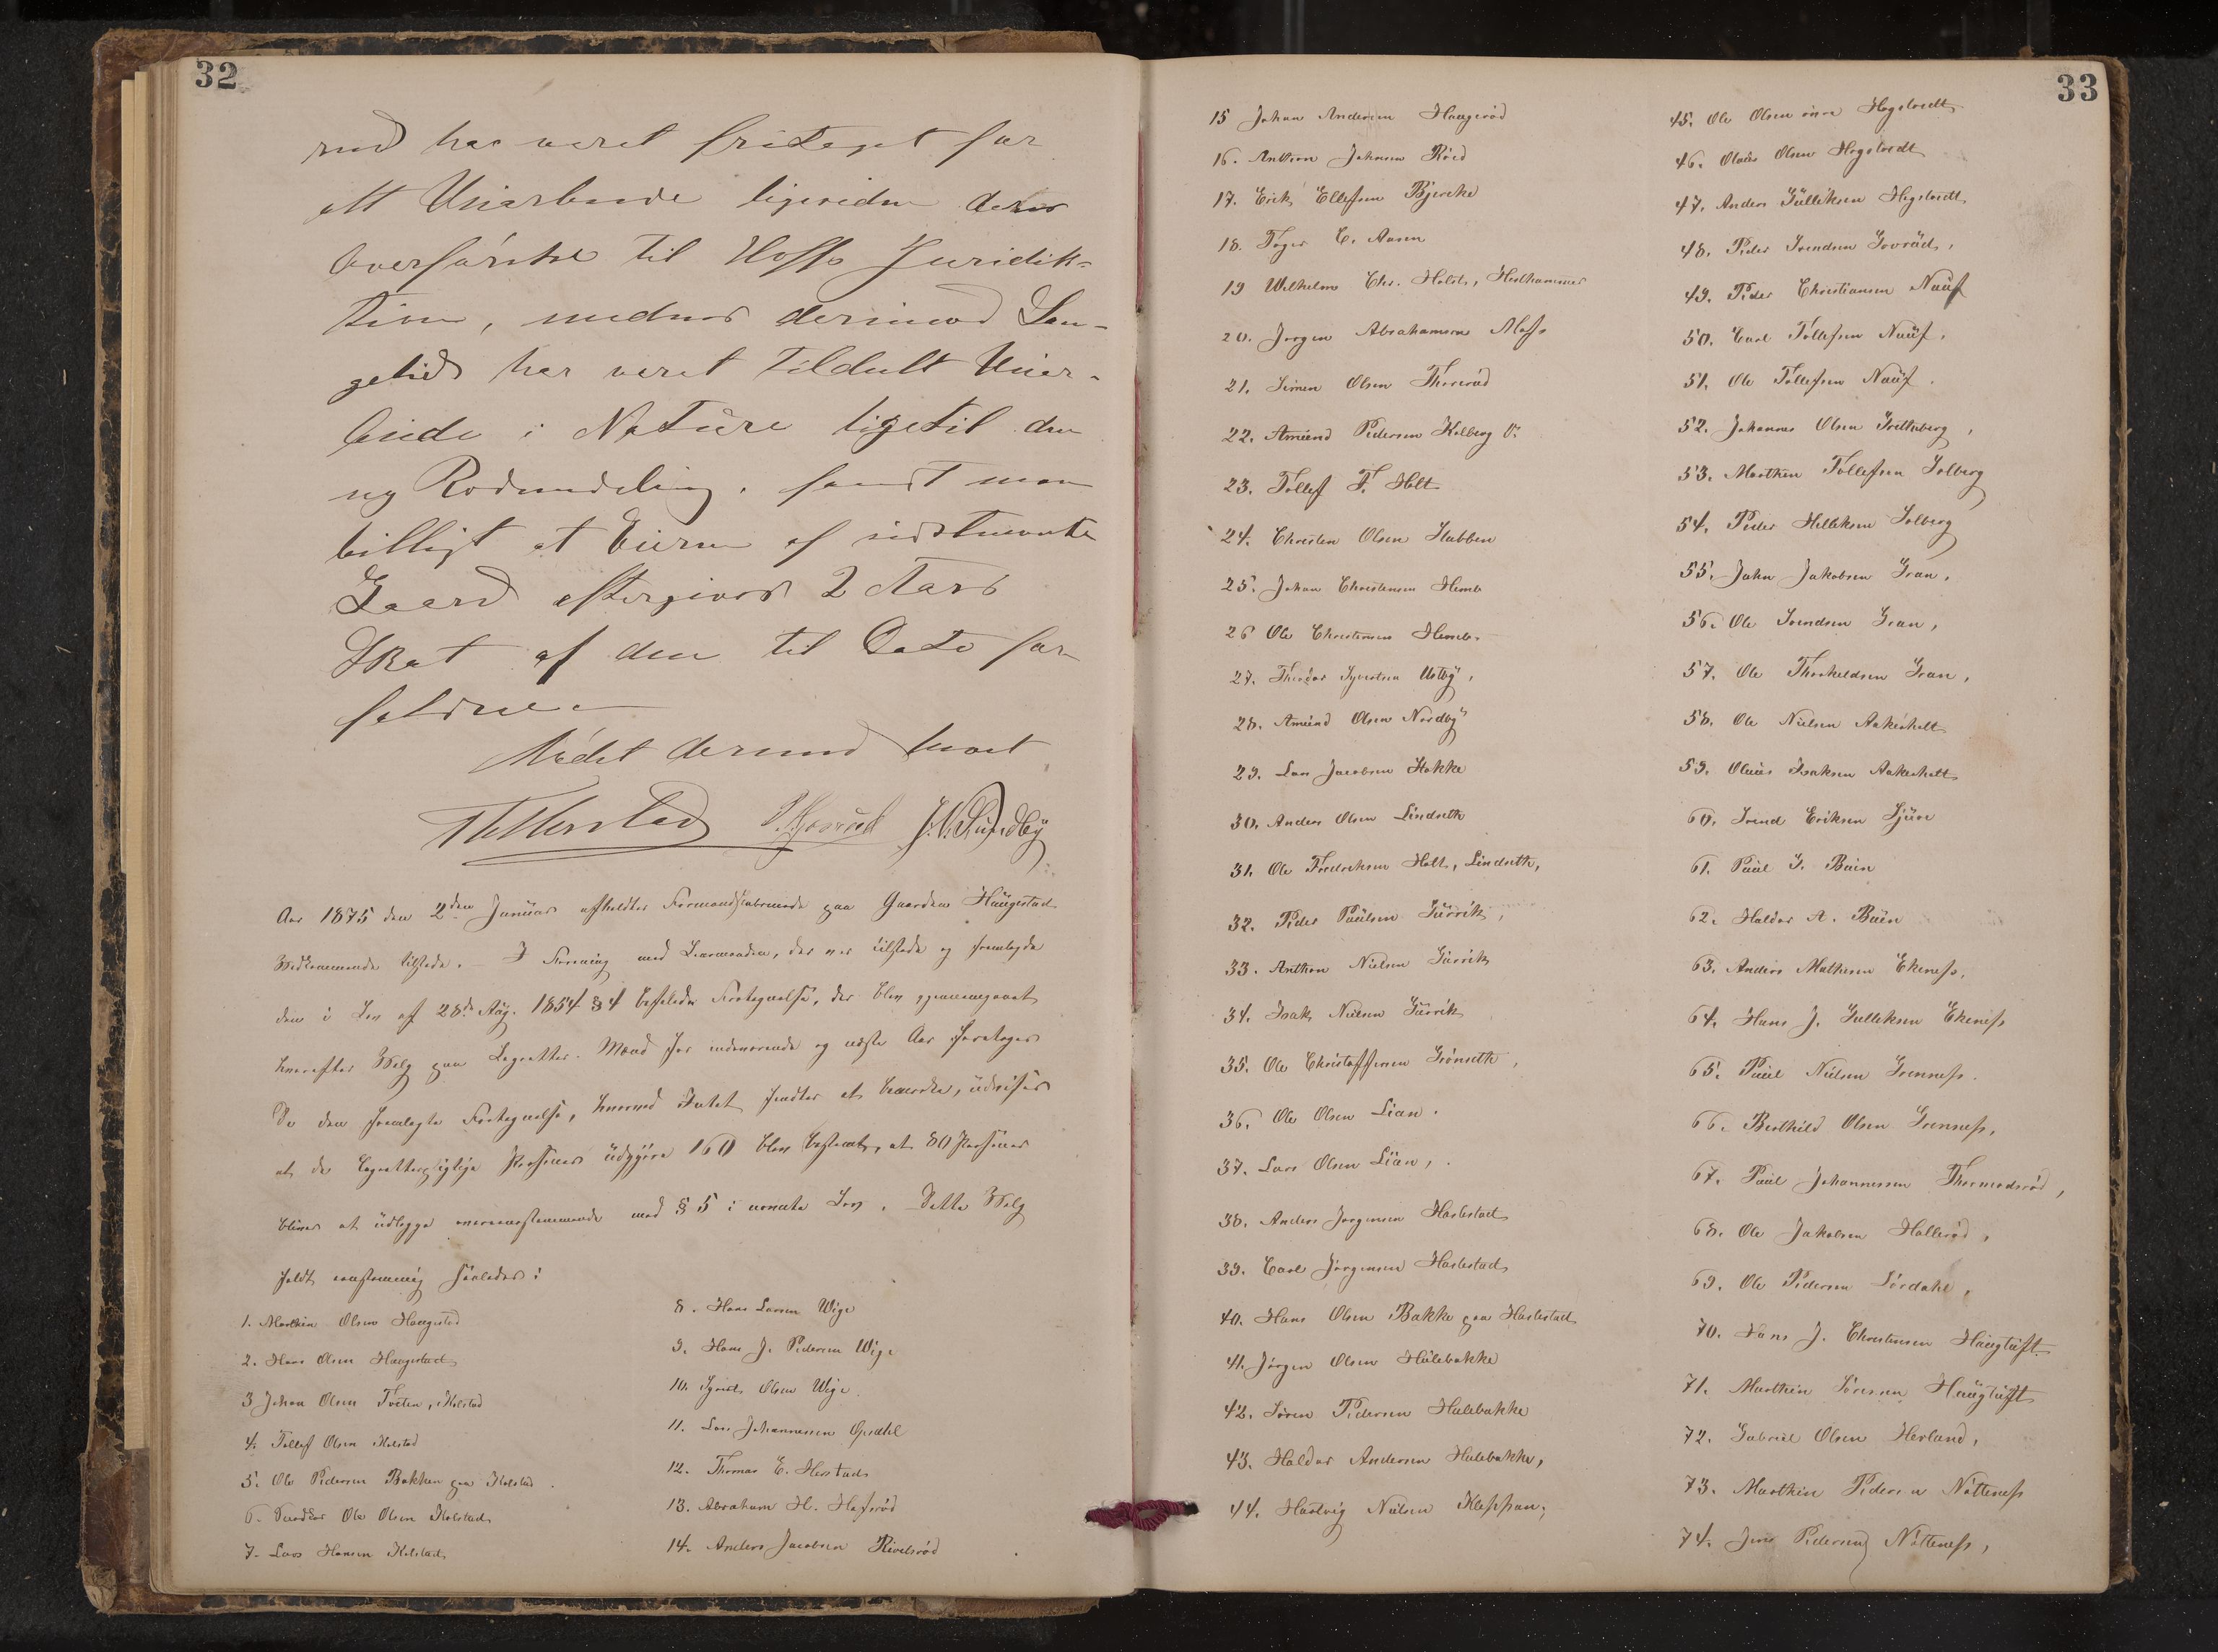 32
rud har været fritaget for
alt Veiarbeide ligesiden deres
Overførelse til Hoffs Juridik-
tion, medens derimod Lan-
gelid har været tildelt Veiar-
beide i Nature ligetil den
ny Rodeinddeling, fandt man
billigt at Eieren af sidstnævnte
Gaard eftergives 2 Aars
Skat af den til Dato for
faldne
Mødet dermed hævet
J. N. Sundby
Aar 1875 den 2den Januar afholdtes Formandskabsmøde paa Gaarden Haugestad
Vedkommende tilstede. – I Forening med Lensmanden, der var tilstede og fremlagde
den i Lov af 28de Aug. 1854 § 4 befalede Fortegnelse, der blev gjennemgaaet
hvorefter Valg paa Lagrettes-Mænd for indeværende og næste Aar foretoges
Da den fremlagte Fortegnelse, hvorved Intet fandtes at bemærke, udviser
at de lagrettepligtige Personer udgjøre 160 blev bestemt, at 80 Personer
bliver at udlægge overensstemmende med § 5 i nævnte Lov. Dette Valg
faldt enstemmig saaledes:
1. Marthin Olsen Haugestad
2. Hans Olsen Haugestad
3 Johan Olsen Tveten, Holstad
4. Tollef Olsen Holstad
5. Ole Pedersen Bakken paa Holstad.
6. Ole Olsen Holstad
7. Lars Hansen Holstad
8. Hans Larsen Wige
9. Hans J. Pedersen Wige
10. Syvert Olsen Wige
11. Lars Johannesen Opdahl
12. Thomas E. Herstad
13. Abraham H. Hafsrød
14. Anders Jacobsen Rivelsrød
33
15 Johan Andersen Haugerød
16. Anthon Johnsen Röed
17. Erik Ellefsen Bjerke
18. Toger C. Aasen
19 Wilhelm Chr. Holst, Hedhammer
20. Jørgen Abrahamsen Moss
21. Simen Olsen Thorerud
22. Amund Pedersen Kolberg V.
23. Tollef T. Holt
24. Christen Olsen Stubben
25. Johan Christensen Hemb
26 Ole Christensen Hemb.
27. Theodor Syvertsen Ustby,
28. Amund Olsen Nordby
29. Lars Jacobsen Hakke
30. Anders Olsen Lindseth
31. Ole Fredriksen Holt, Lindseth,
32. Peder Paulsen Gurrik,
33. Anthon Nielsen Gurrik
34. Isak Nielsen Gurrik
35. Ole Christoffersen Grönseth,
36. Ole Olsen Lian.
37. Lars Olsen Lian,
38. Anders Jørgensen Haslestad
39. Carl Jørgensen Haslestad
40. Hans Olsen Bakke paa Haslestad
41. Jørgen Olsen Hulebakke
42. Søren Pedersen Hulebakke
43. Haldor Andersen Hulebakke,
44. Hartvig Nielsen Kleppan,
45. Ole Olsen övre Hogstvedt
46. Olaus Olsen Hogstvedt
47. Anders Gulliksen Hogstvedt
48. Peder Svendsen Govrud,
49. Peder Christiansen Nauf
50. Carl Tollefsen Nauf,
51. Ole Tollefsen Nauf.
52. Johannes Olsen Gretteberg,
53. Marthin Tollefsen Solberg
54. Peder Helleksen Solberg
55. John Jakobsen Gran,
56. Ole Svendsen Gran,
57. Ole Thorkeldsen Gran,
58. Ole Nielsen Aakesholt
59. Olaus Isaksen Aakesholt
60. Svend Eriksen Sjue
61. Paul I. Buin
62. Haldor A. Buin
63. Anders Mathesen Ekeness,
64. Hans J. Gulliksen Ekeness
65. Paul Nielsen Grenness.
66. Berthild Olsen Grenness,
67. Paul Johannessen Thormodsrød,
68. Ole Jakobsen Hallerød,
69. Ole Pedersen Sørdahl,
70. Hans J. Christensen Haugtuft
71. Marthin Sörensen Haugtuft
72. Gabriel Olsen Herland,
73. Marthin Pedersen Nötteness
74. Jens Pedersen Nötteness,